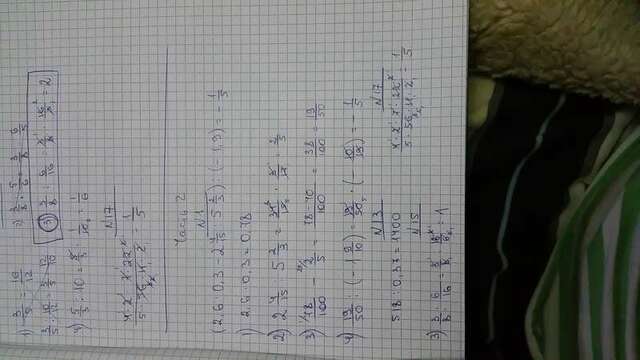 1) 3/5 = 10/12    2) 3/8 : 5/6 = 3/8 · 6/5
3/5 : 10/12 = 3/5 · 12/10    3) 3/8 : 6/16 = 3/8 · 16/6 = 2
4) 5/3 : 10 = 5/3 · 1/10 = 1/6
N17
4·2·7·22 / 5·56·11·2 = 1/5
Часть 2
N1
(2,6 · 0,3 - 2 4/15 : 5 2/3) : (-1,9) = - 1/5
1) 2,6 · 0,3 = 0,78
2) 2 4/15 : 5 2/3 = 34/15 · 3/17 = 2/5
3) 78/100 - 2/5 = 78-40/100 = 38/100 = 19/50
4) 19/50 : (-1 9/10) = 19/50 · (-10/19) = - 1/5
N13    N17
518 : 0,37 = 1400    4·2·7·22 / 5·56·11·2 = 1/5
N15
3) 3/8 : 6/16 = 3/8 · 16/6 = 1